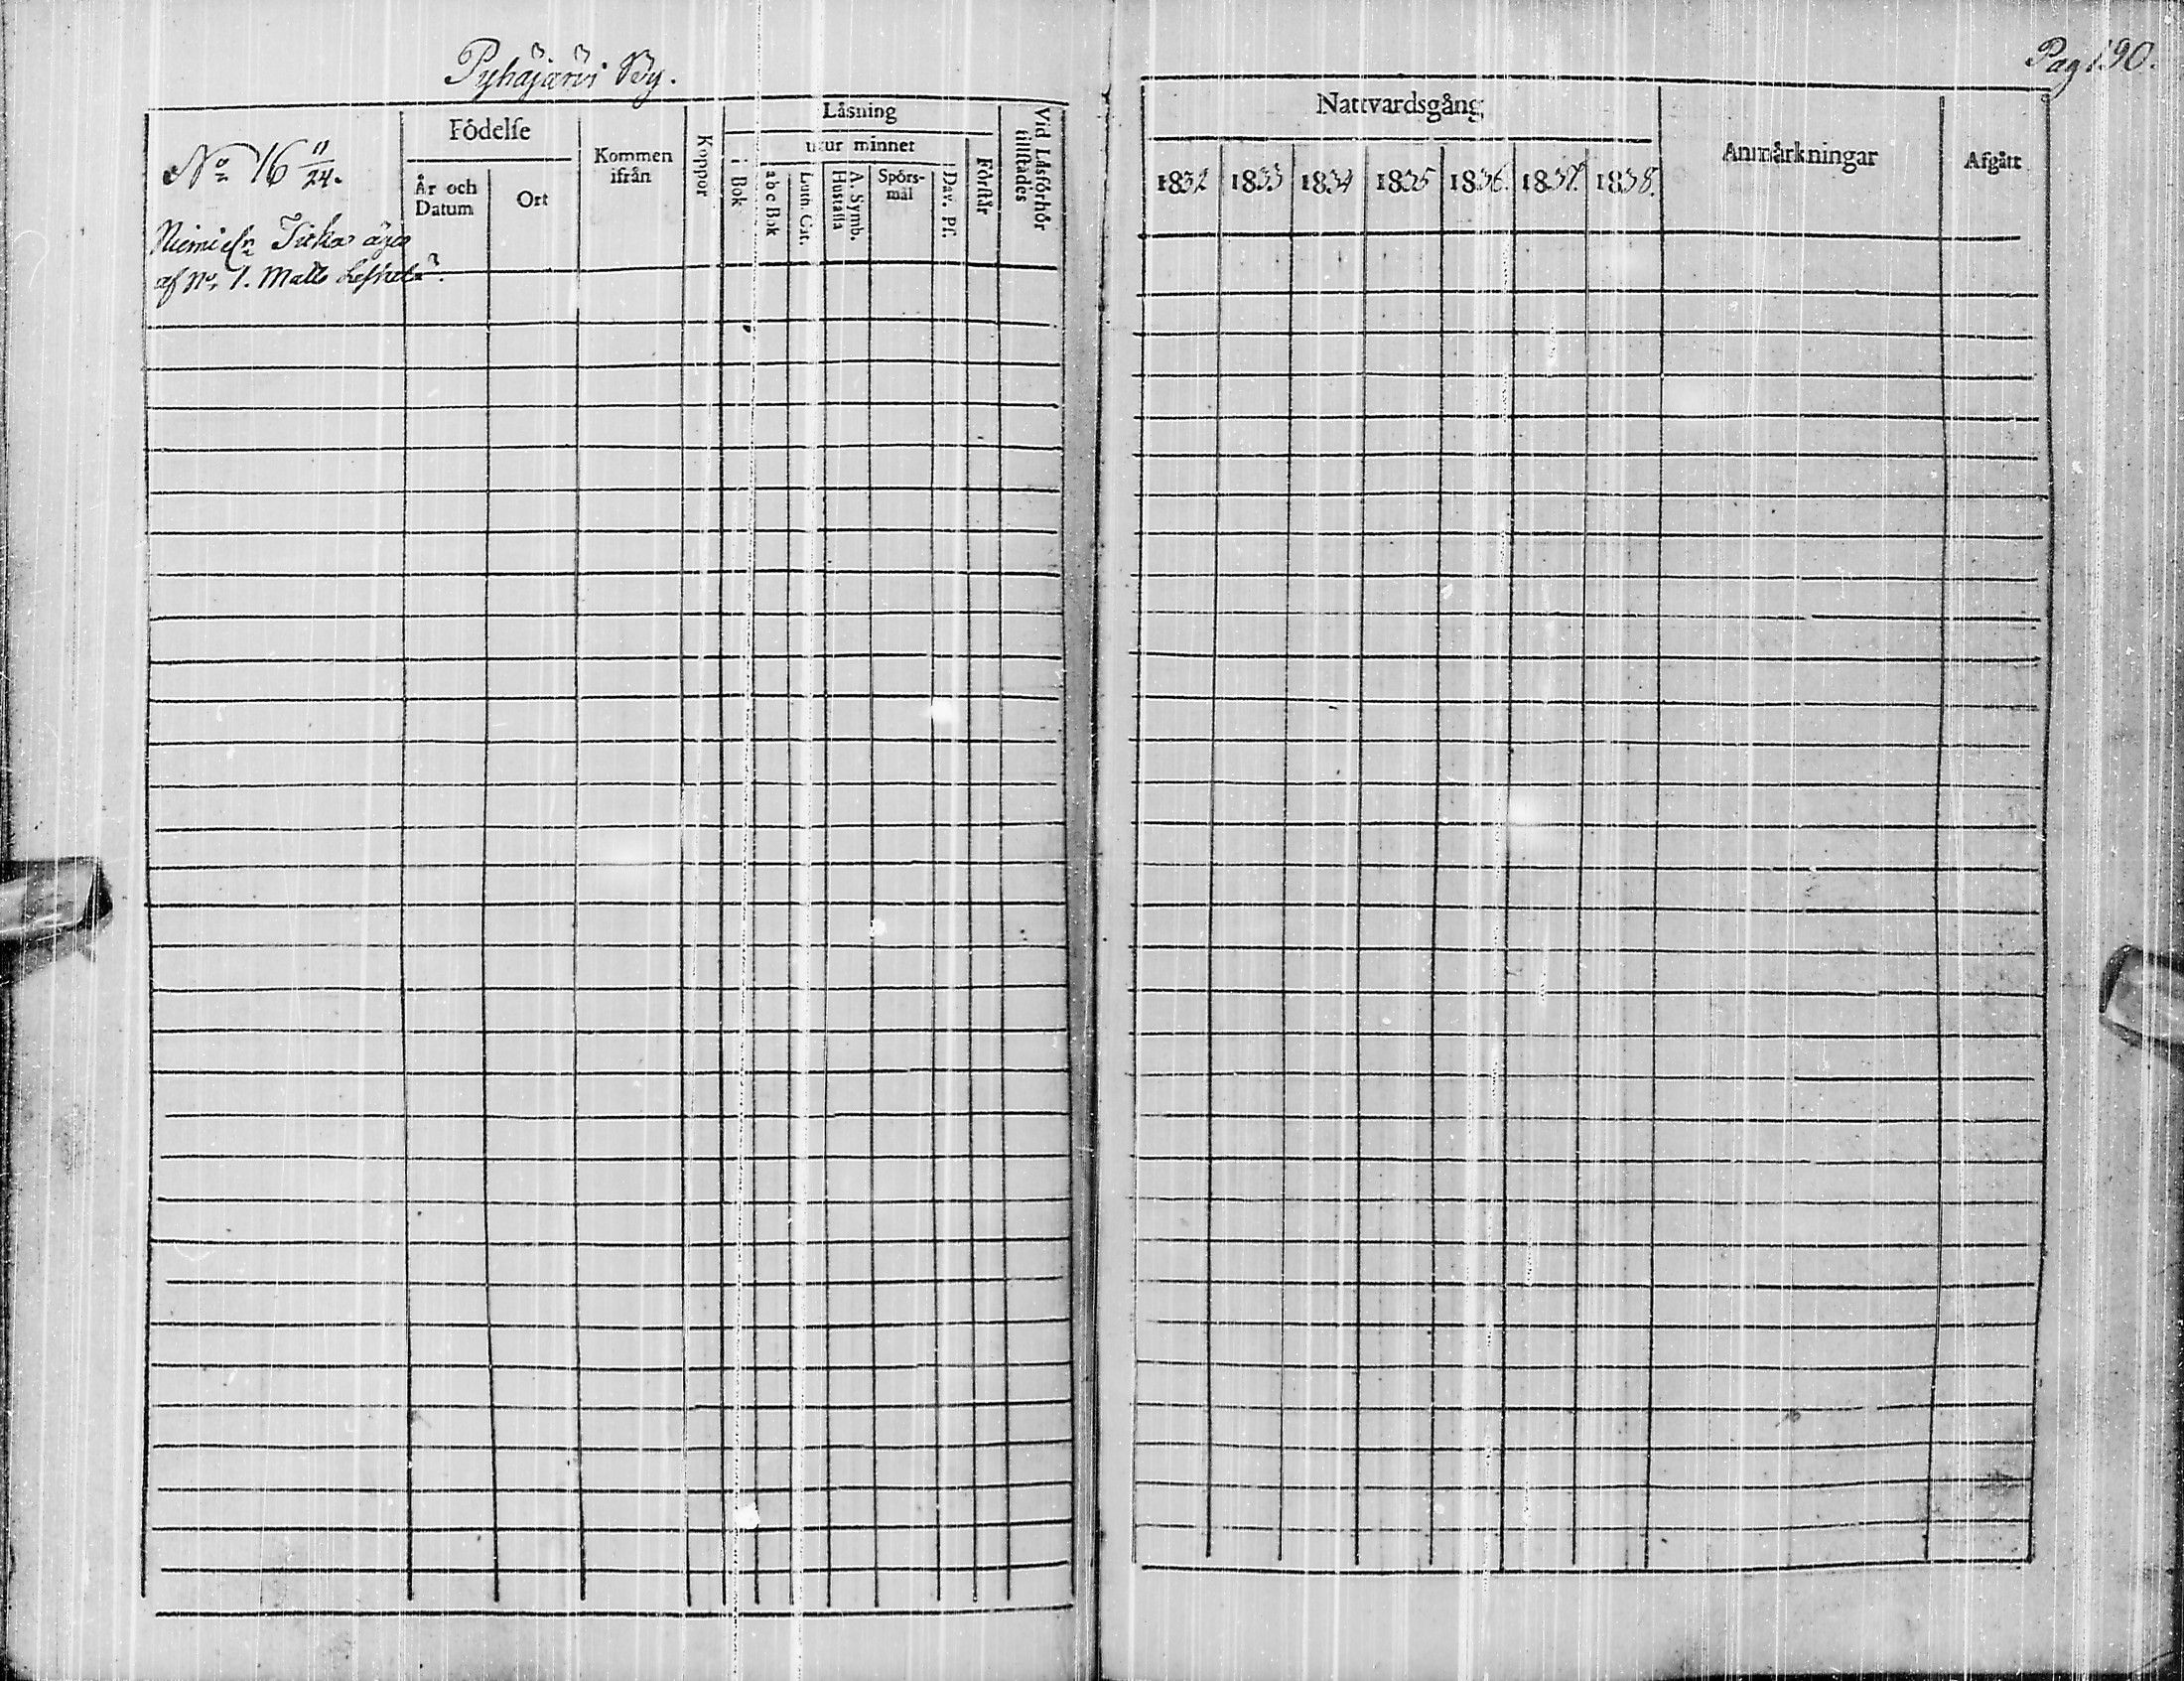 Pyhäjärvi By.
Pag 190.
No 16 11/24.
Niemi ell. Sitka äges
af No 1. Matts
Födelse
År och Datum
Ort
Kommen ifrån
Koppor
Läsning
i Bok
utur minnet
a b c Bok
Luth. Cat.
A. Symb. Hustafla
Spörs-mål
Dav. Ps.
Förstår
Vid Läsförhör tillstädes
Nattvardsgång
1832 1833 1834 1835 1836. 1837. 1838.
Anmärkningar
Afgått